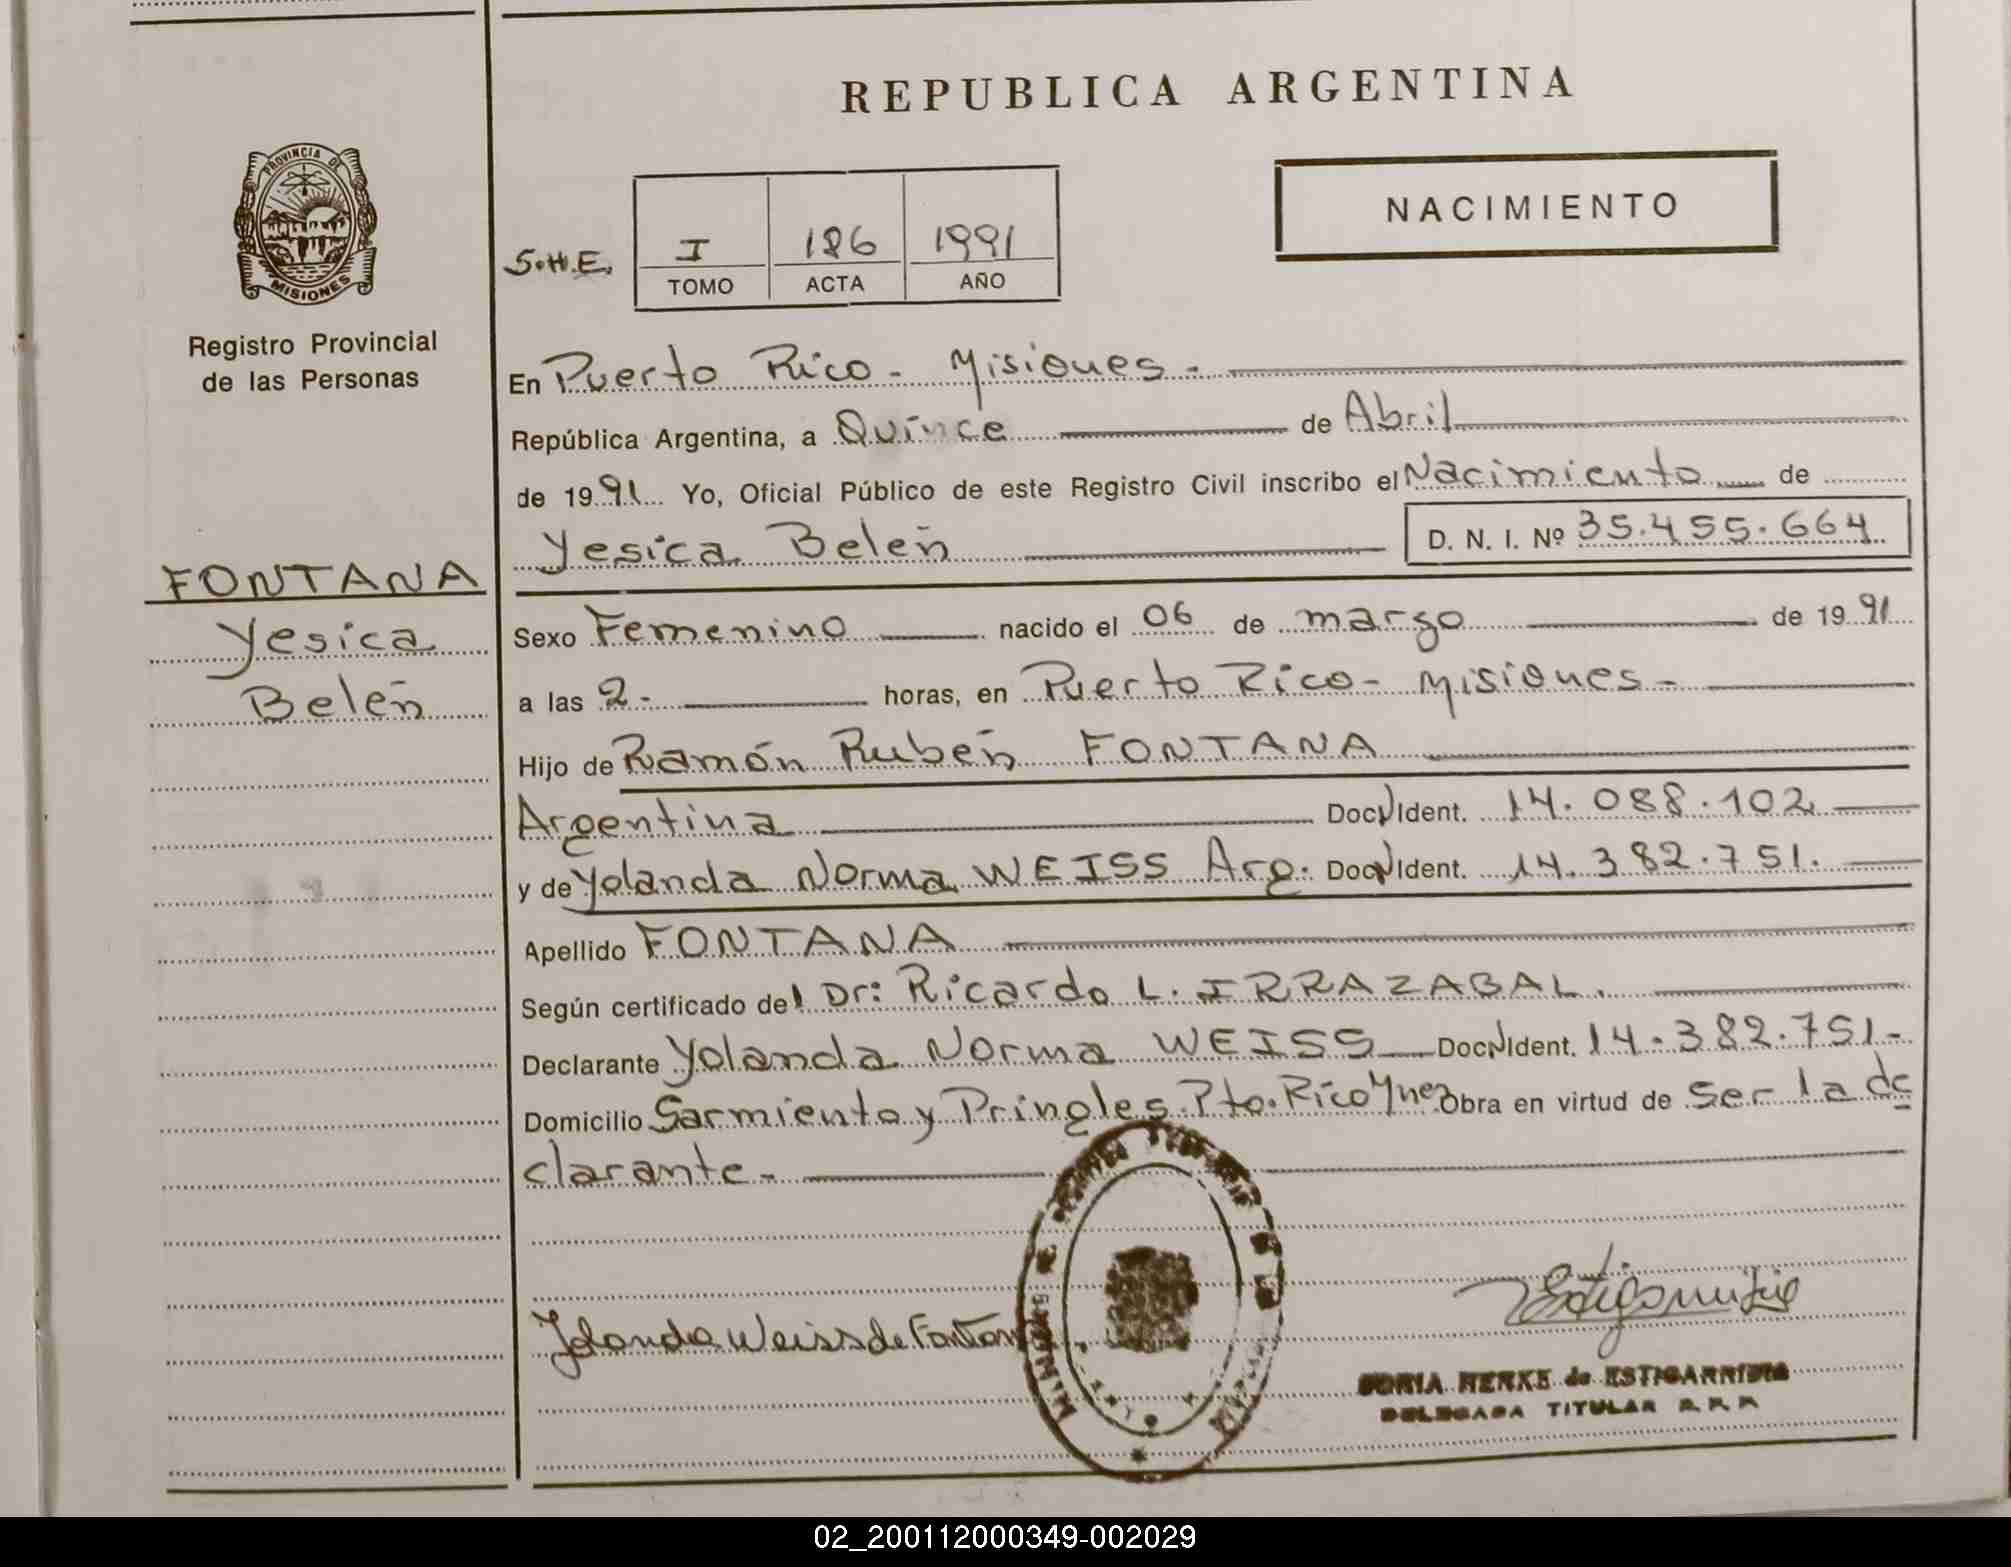 REPUBLICA ARGENTINA
PROVINCIA DE
MISIONES
Registro Provincial
de las Personas
NACIMIENTO
S.H.E.
I 186 1991
TOMO ACTA AÑO
En Puerto Rico - Misiones -
República Argentina, a Quince de Abril
de 19 91 Yo, Oficial Público de este Registro Civil inscribo el Nacimiento de
Yesica Belén D. N. I. Nº 35.455.664
FONTANA
Yesica
Belén
Sexo Femenino nacido el 06 de marzo de 19 91
a las 2- horas, en Puerto Rico - Misiones -
Hijo de Ramón Rubén FONTANA
Argentina Doc. Ident. 14.088.102
y de Yolanda Norma WEISS Arg. Doc. Ident. 14.382.751.
Apellido FONTANA
Según certificado del Dr: Ricardo L. IRRAZABAL.
Declarante Yolanda Norma WEISS Doc. Ident. 14.382.751-
Domicilio Sarmiento y Pringles Pto. Rico Mnes Obra en virtud de ser la de
clarante -
Yolanda Weiss de Fontan
SORIA HERKE de ESTIGARRIBIA
DELEGADA TITULAR R.P.P.
02_200112000349-002029